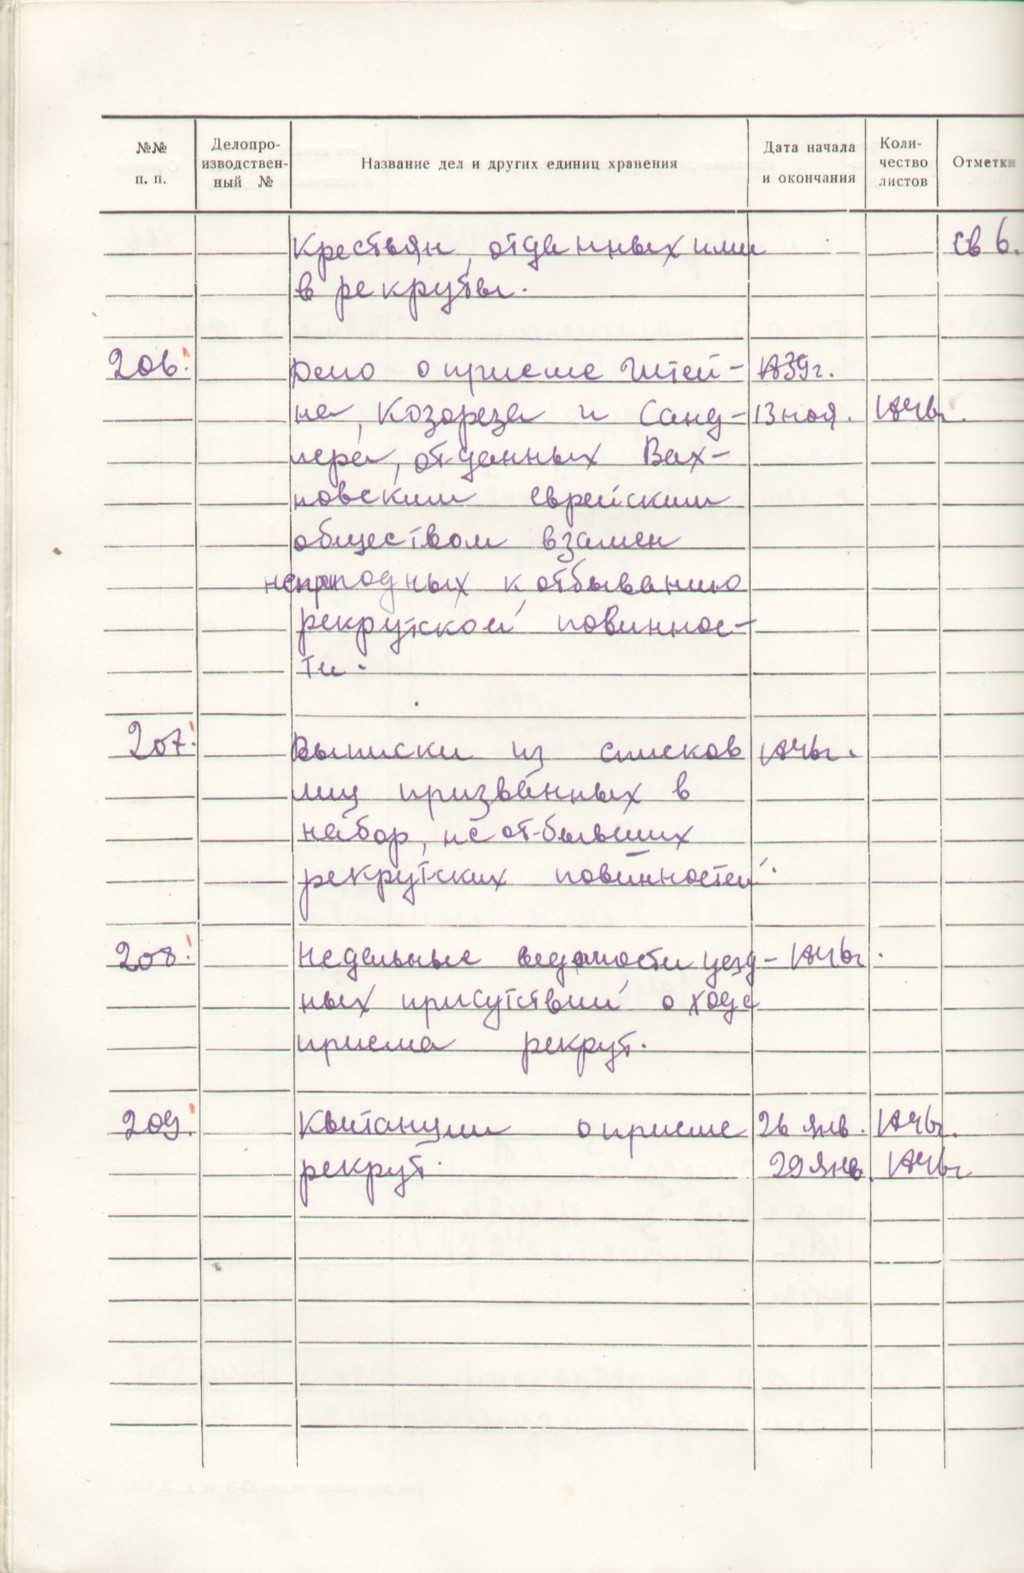 №№ п. п. Делопро-изводствен-ный № Название дел и других единиц хранения Дата начала и окончания Коли-чество листов Отметки
Крестьян, отданных ими св 6.
в рекруты.
206. Дело о приеме Штей- 1839г.
на, Козореза и Санд- 13 ноя. 1846г.
лера, отданных Вах-
новским еврейским
обществом взамен
непригодных к отбыванию
рекрутской повиннос-
ти.
207. Выписки из списков 1846г.
лиц призванных в
набор, не отбывших
рекрутских повинностей.
208. Недельные ведомости уезд- 1846г.
ных присутствий о ходе
приема рекрут.
209. Квитанции о приеме 26 янв. 1846г.
рекрут. 29 янв. 1846г